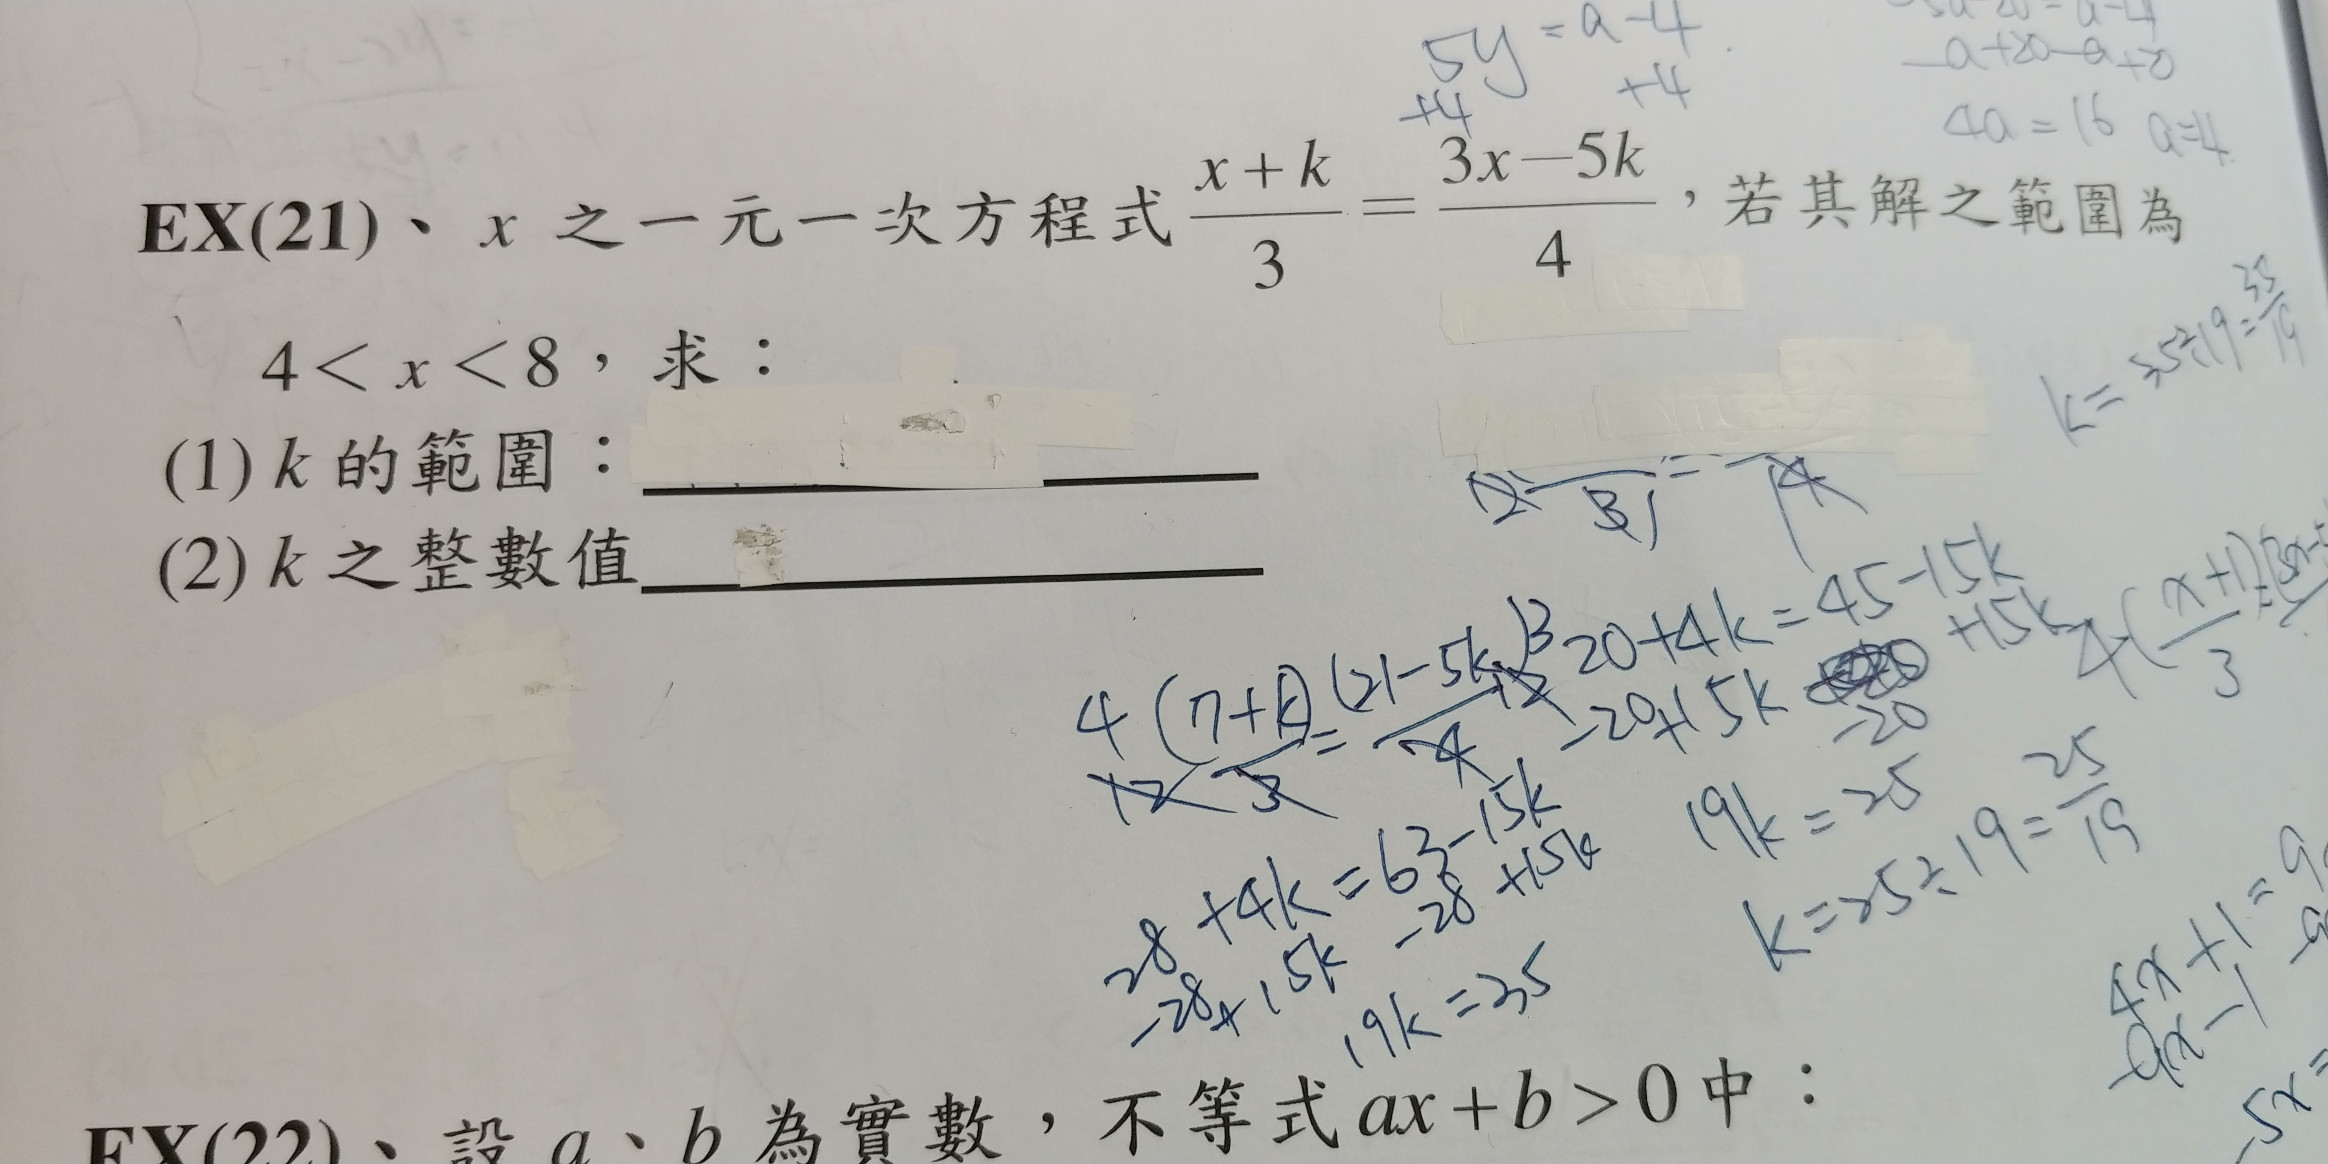 5y = a-4
+4 +4
-a+20-a+20
4a = 16 a=4
EX(21)、x 之一元一次方程式 \frac{x+k}{3} = \frac{3x-5k}{4}，若其解之範圍為
4 < x < 8，求：
(1) k 的範圍：
(2) k 之整數值
k = 35÷19 = \frac{35}{19}
20+4k = 45-15k
-20+15k -20 +15k
19k = 25
k = 25÷19 = \frac{25}{19}
4(7+k) = (21-5k)3
12 3 4 12
28+4k = 63-15k
-28+15k -28 +15k
19k = 35
4(\frac{x+1}{3}
4x+1 = 9
-9x-1
-5x =
EX(22)、設 a、b 為實數，不等式 ax+b>0 中：